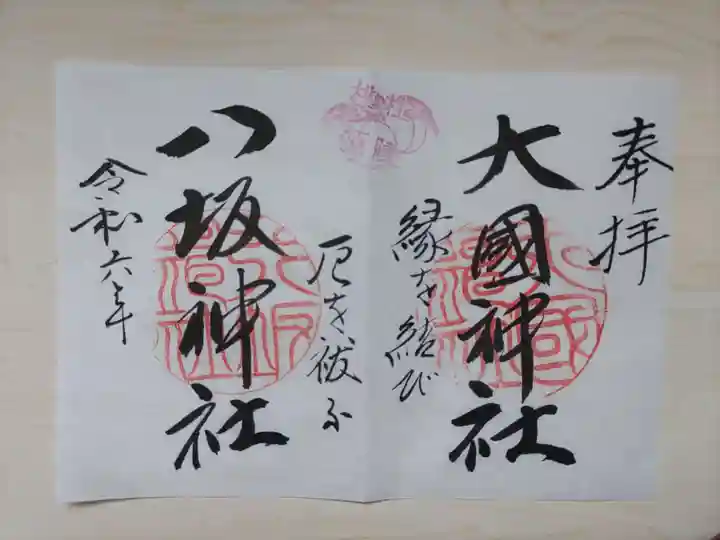 奉拝
大國神社
縁を結び
厄を祓ふ
八坂神社
令和六年